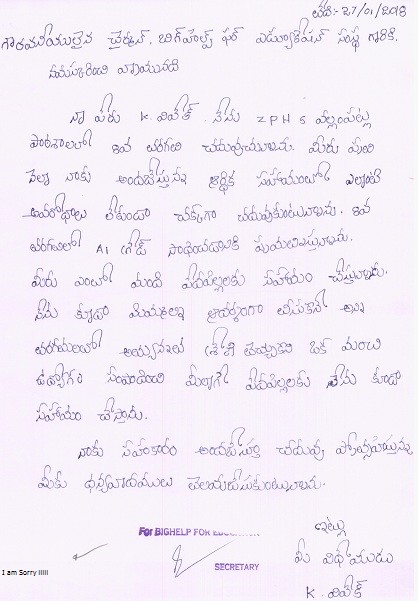 తేది:- 27/01/2018
గౌరవనీయులైన చైర్మన్, బిగ్‌హెల్ప్ ఫర్ ఎడ్యుకేషన్ సంస్థ గారికి.
నమస్కరించి వ్రాయునది
నా పేరు K. వివేక్. నేను ZPHS వెల్లంపట్ల
పాఠశాలలో 8వ తరగతి చదువుచున్నాను. మీరు ప్రతి
నెలా నాకు అందజేస్తున్న ఆర్థిక సహాయంతో ఎలాంటి
అవరోధాలు లేకుండా చక్కగా చదువుకుంటున్నాను. 8వ
తరగతిలో A1 గ్రేడ్ సాధించడానికి ప్రయత్నిస్తున్నాను.
మీరు ఎంతో మంది పేదపిల్లలకు సహాయం చేస్తున్నారు.
నేను కూడా మిమ్మల్ని ఆదర్శంగా తీసుకొని అన్ని
తరగతులలో అత్యున్నత శ్రేణి తెచ్చుకుని ఒక మంచి
ఉద్యోగం సంపాదించి మీలాగే పేదపిల్లలకు నేను కూడా
సహాయం చేస్తాను.
నాకు సహకారం అందజేస్తూ చదువు ప్రోత్సహిస్తున్న
మీకు ధన్యవాదములు తెలియజేసుకుంటున్నాను.
ఇట్లు
మీ విధేయుడు
K. వివేక్
For BIGHELP FOR EDUCATION
SECRETARY
I am Sorry !!!!!